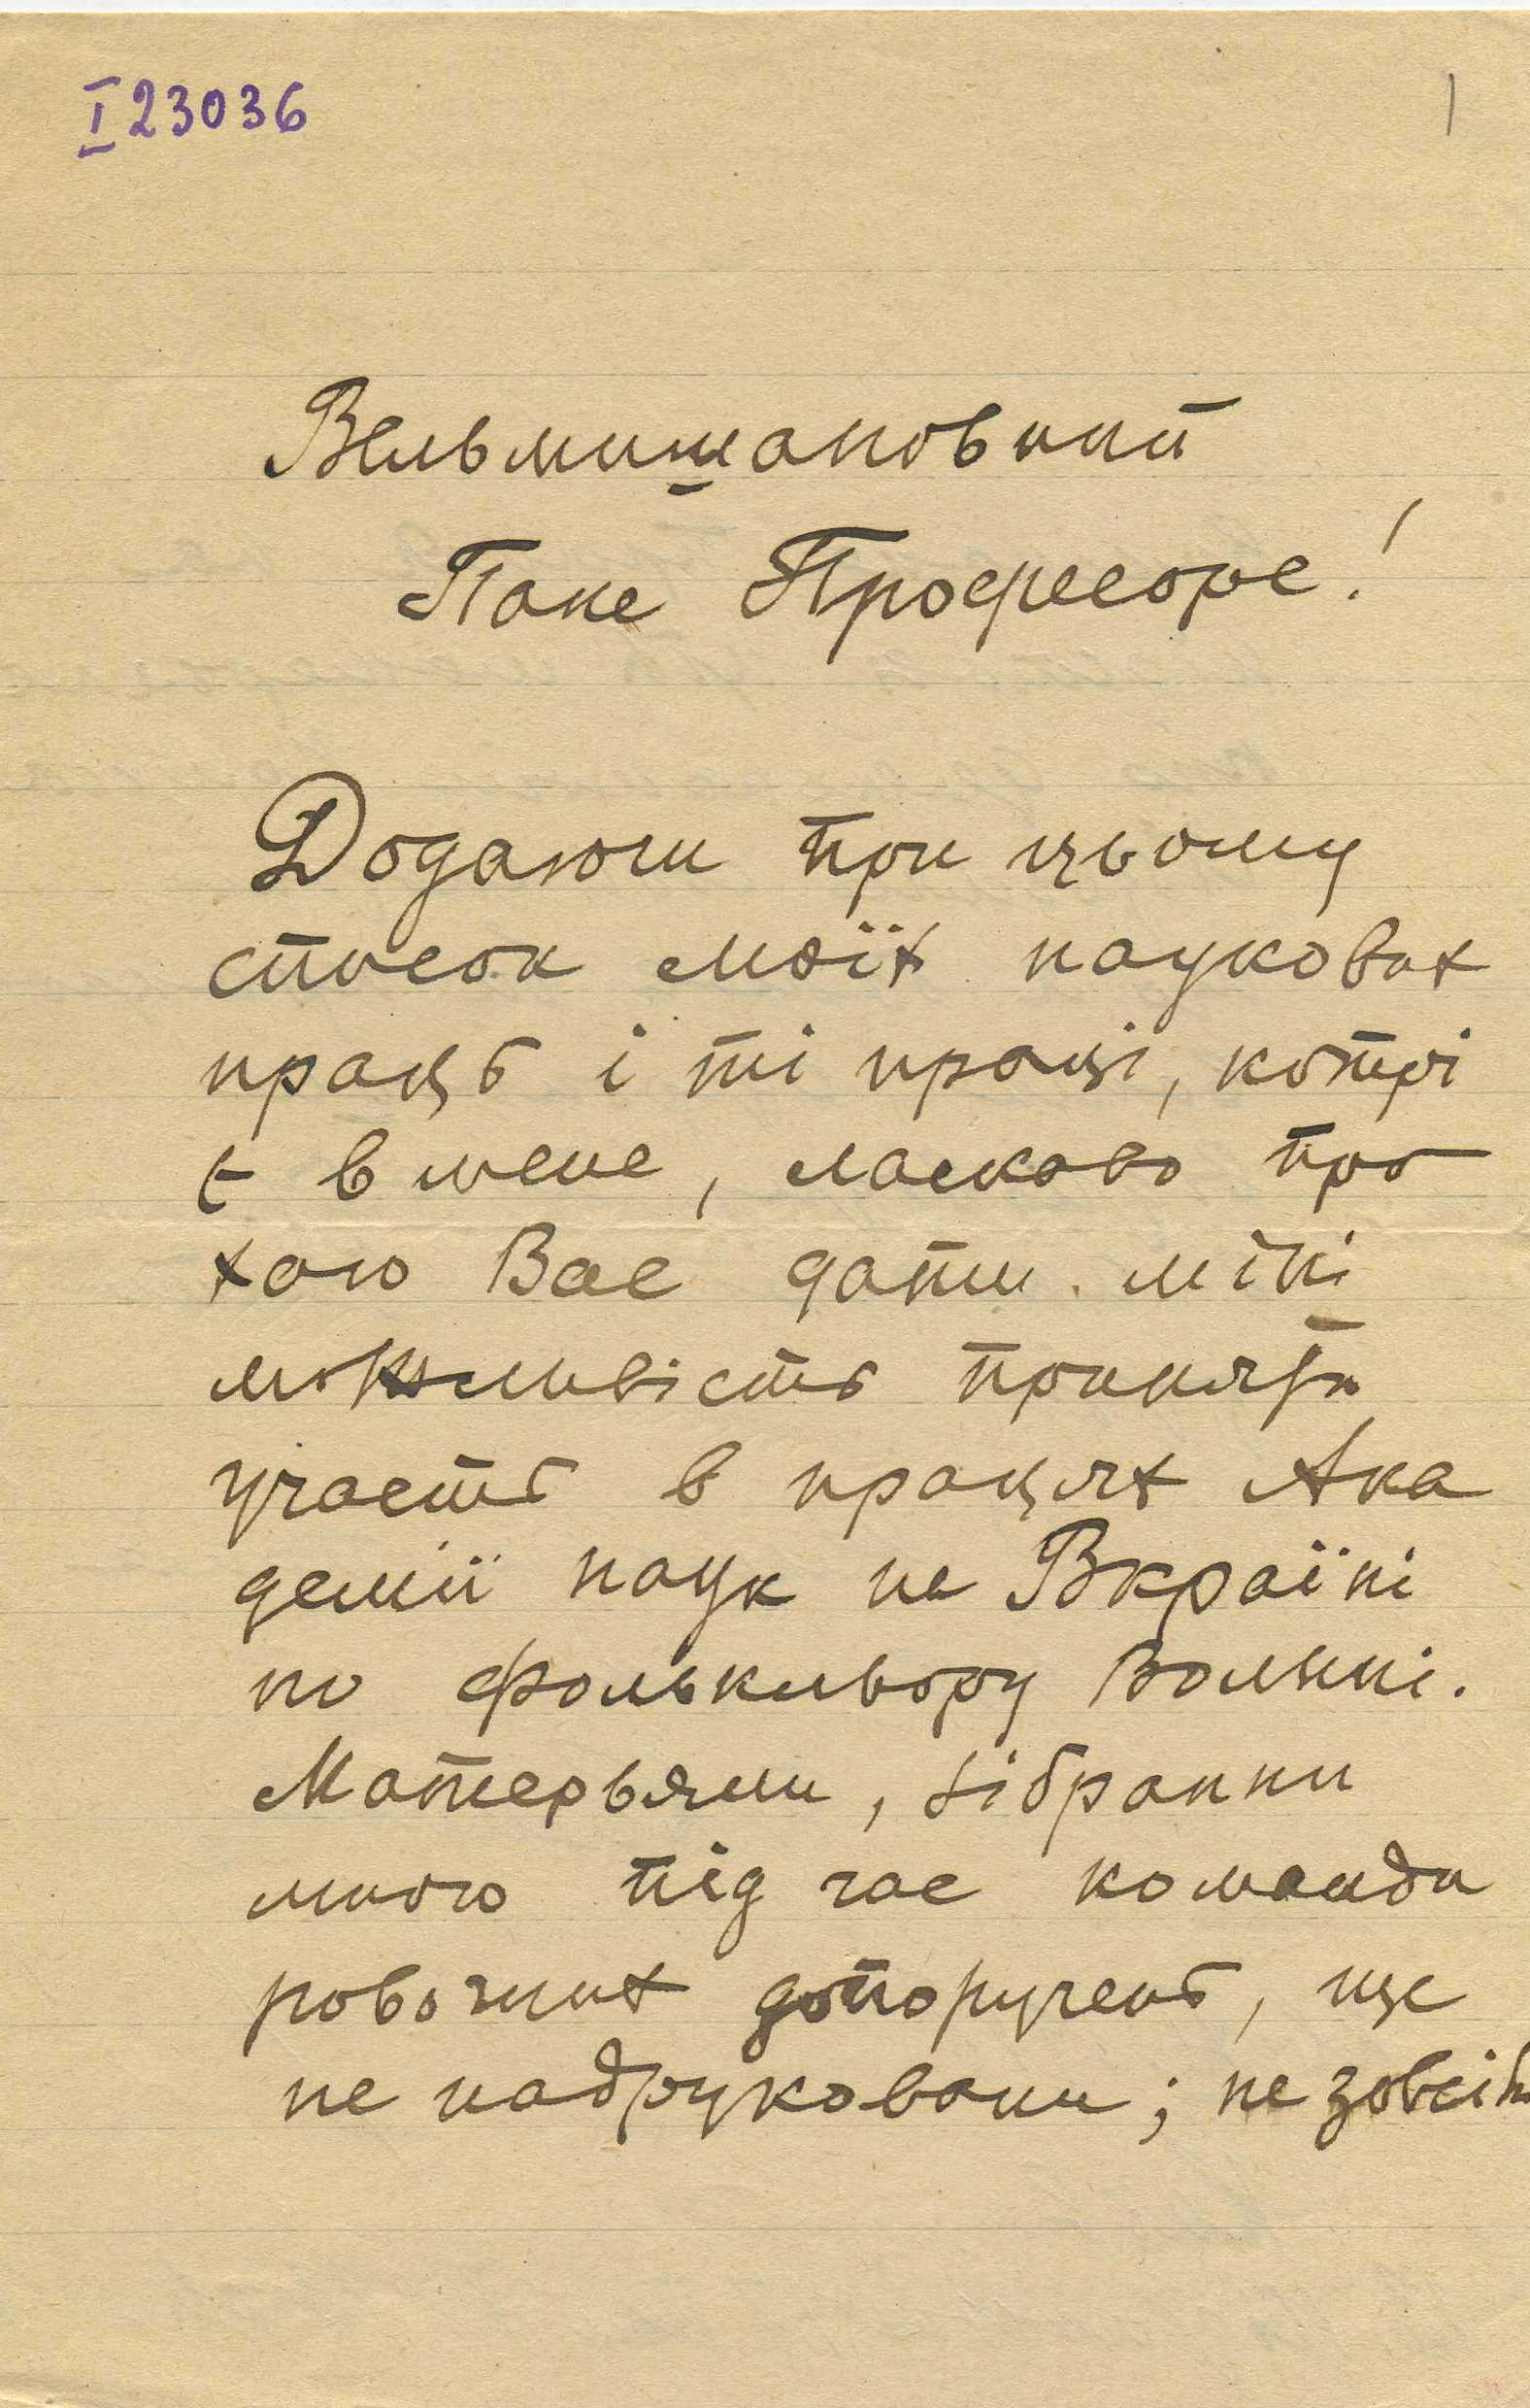 I 23036
1
Вельмишановний
Пане Професоре!
Додаючи при цьому
список моїх наукових
праць і ті праці, котрі
є в мене, ласкаво про
хаю Вас дати міні
можливість приняти
участь в працях Ака
демії наук на Вкраїні
по фолькльору Волині.
Матерьяли, зібранни
мною під час команди
ровочних доporучень, ще
не надруковани; не зовсім